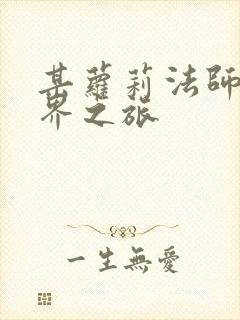 某蘿莉法師
界之旅
一生無愛